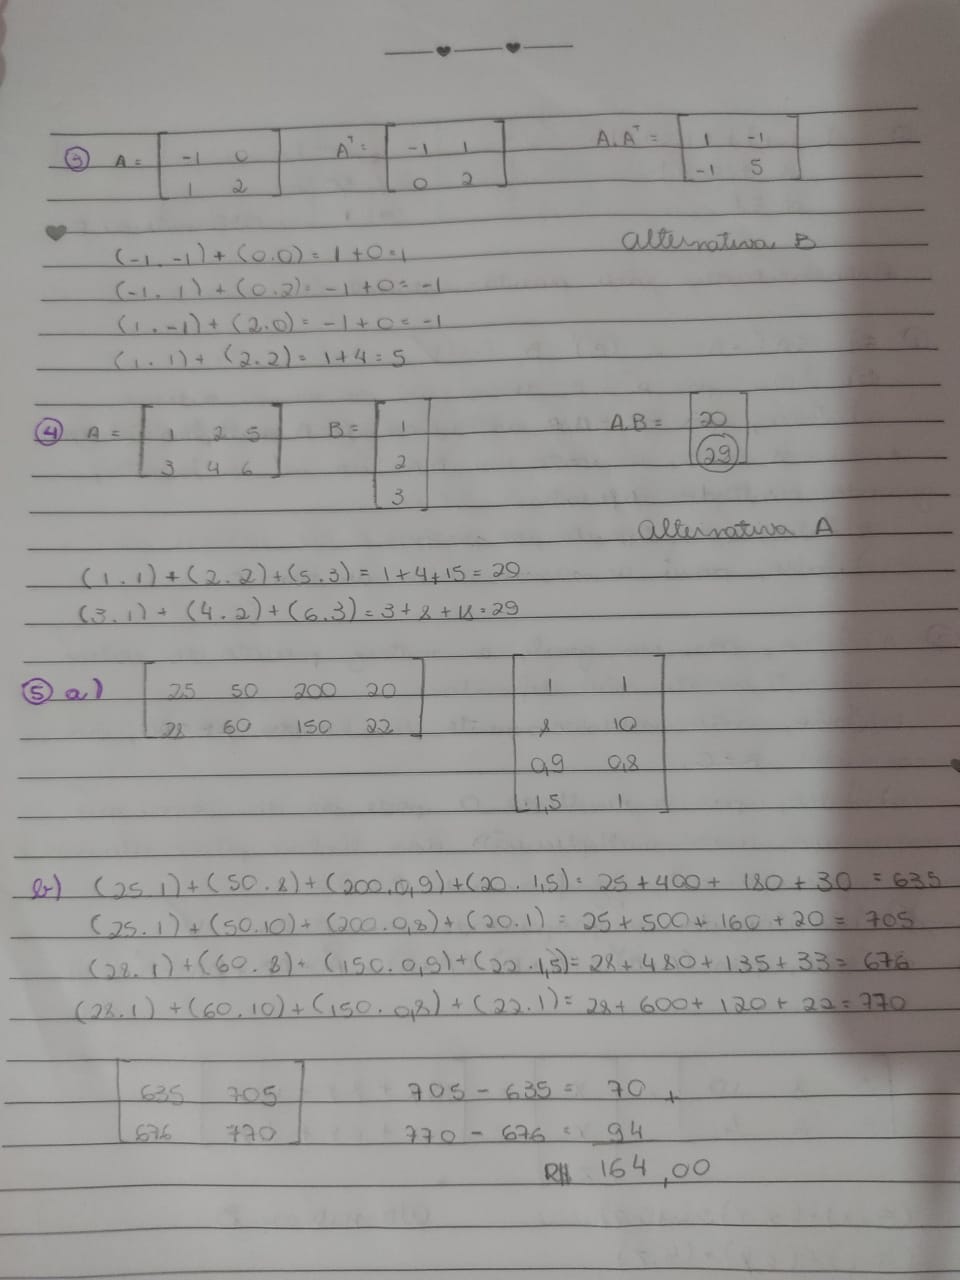 3 A = -1 0 Aᵀ = -1 1 A.Aᵀ = 1 -1
1 2 0 2 -1 5
Alternativa B
(-1. -1) + (0.0) = 1 + 0 = 1
(-1. 1) + (0.2) = -1 + 0 = -1
(1. -1) + (2.0) = -1 + 0 = -1
(1. 1) + (2.2) = 1 + 4 = 5
4 A = 1 2 5 B = 1 A.B = 20
3 4 6 2 29
3
Alternativa A
(1.1) + (2.2) + (5.3) = 1 + 4 + 15 = 20
(3.1) + (4.2) + (6.3) = 3 + 8 + 18 = 29
5 a) 25 50 200 20 1 1
28 60 150 22 8 10
0,9 0,8
1,5 1
b) (25.1) + (50.8) + (200.0,9) + (20.1,5) = 25 + 400 + 180 + 30 = 635
(25.1) + (50.10) + (200.0,8) + (20.1) = 25 + 500 + 160 + 20 = 705
(28.1) + (60.8) + (150.0,9) + (22.1,5) = 28 + 480 + 135 + 33 = 676
(28.1) + (60.10) + (150.0,8) + (22.1) = 28 + 600 + 120 + 22 = 770
635 705 705 - 635 = 70 +
676 770 770 - 676 = 94
R$ 164,00